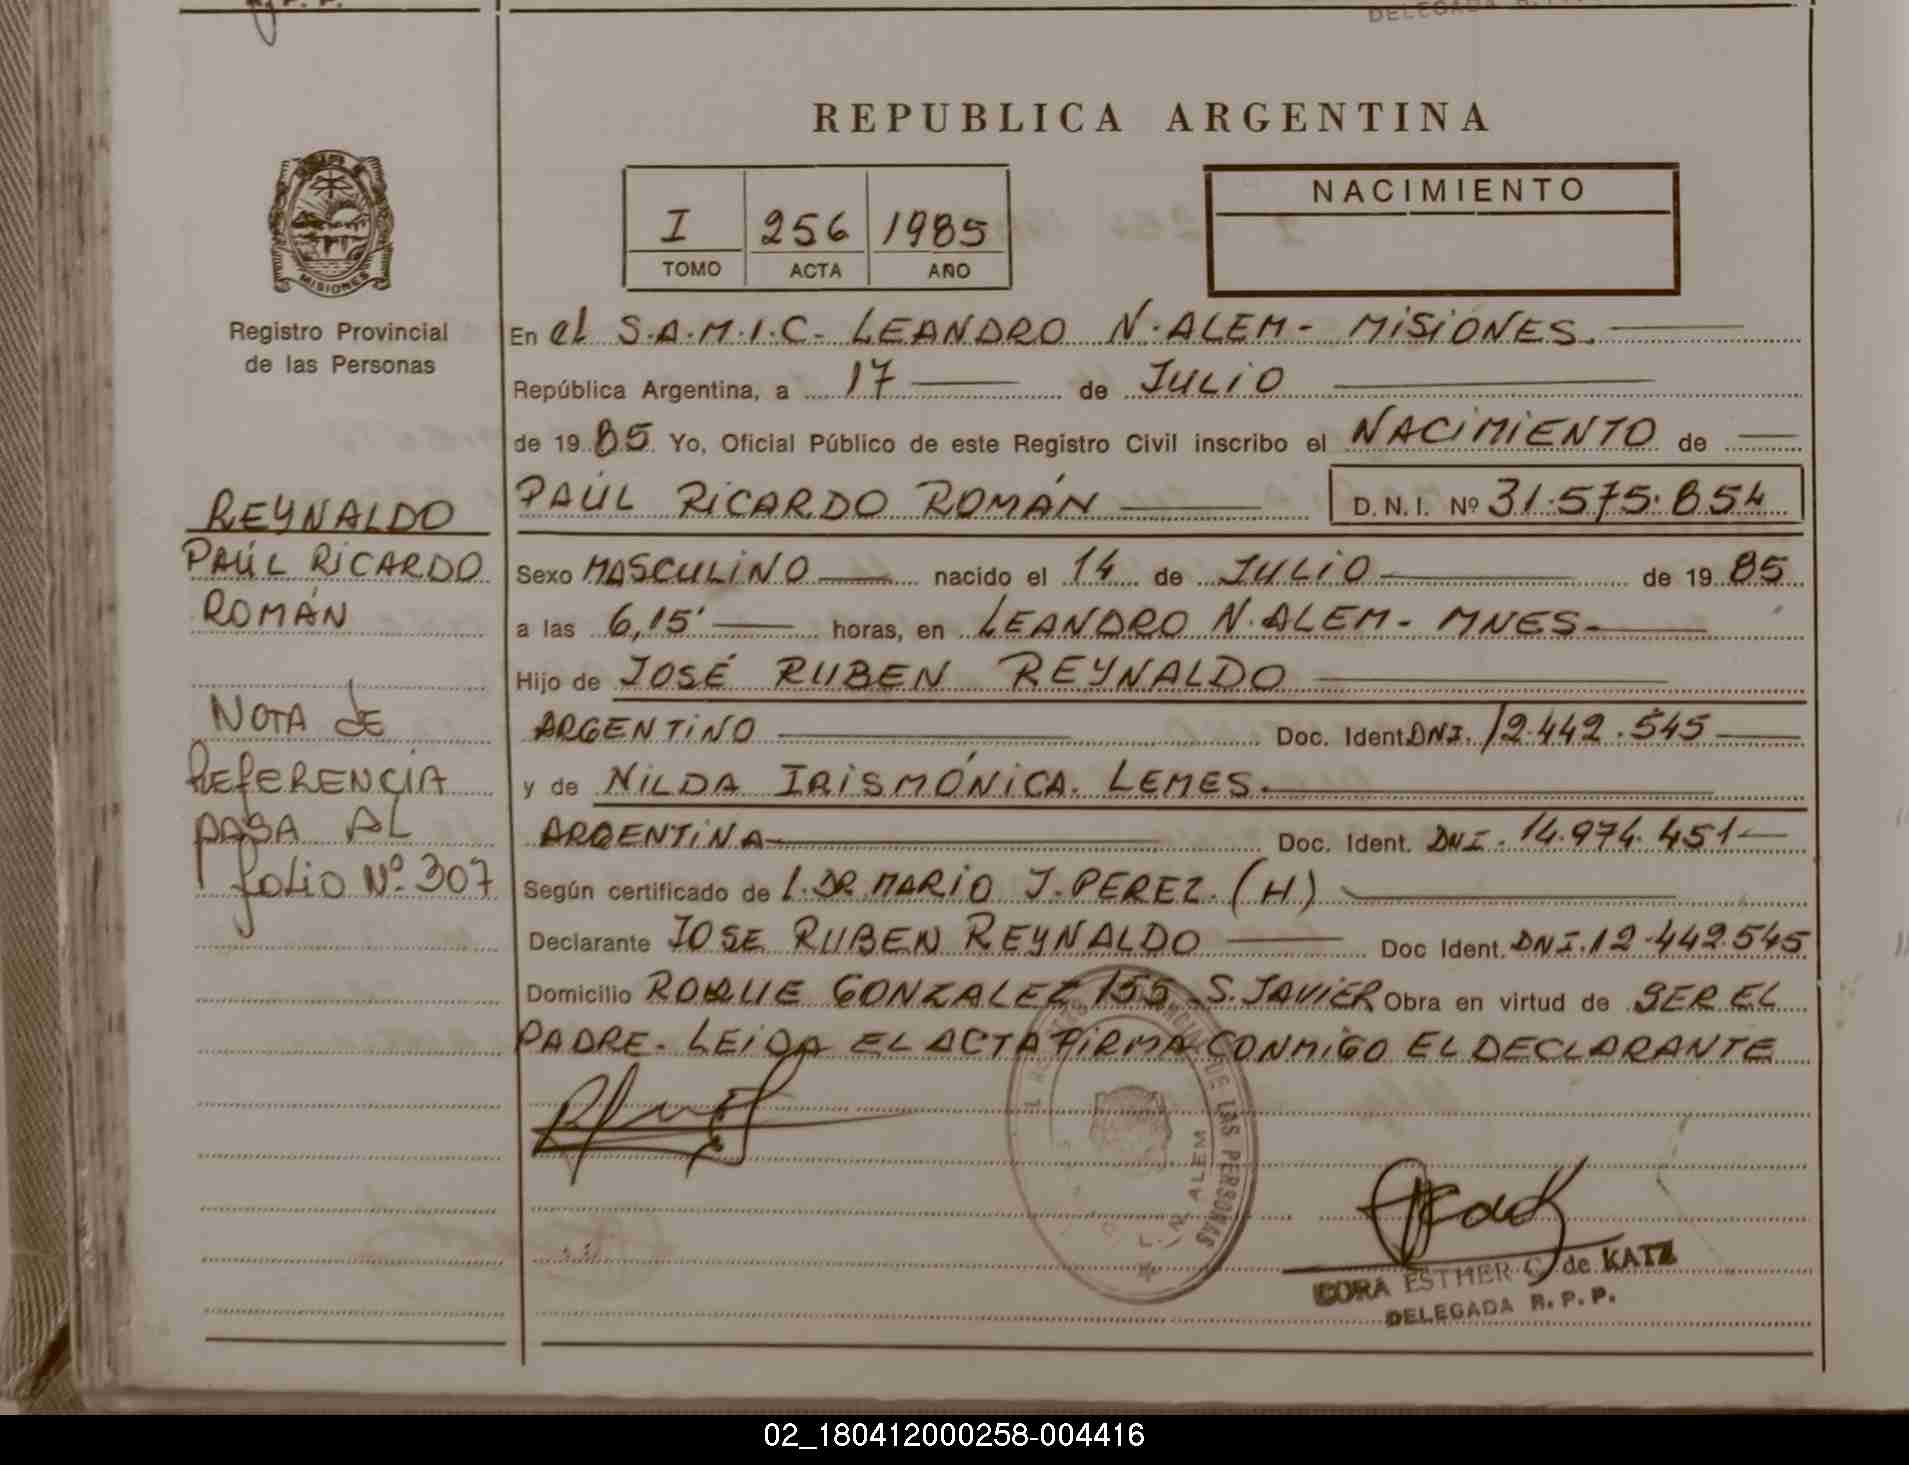 DELEGADA R.P.P.
REPUBLICA ARGENTINA
I 256 1985
TOMO ACTA AÑO
NACIMIENTO
MISIONES
Registro Provincial
de las Personas
En el S.A.M.I.C- LEANDRO N. ALEM - MISIONES.
República Argentina, a 17 de JULIO
de 19 85 Yo, Oficial Público de este Registro Civil inscribo el NACIMIENTO de
PAÚL RICARDO ROMÁN D.N.I. Nº 31.575.854
REYNALDO
PAÚL RICARDO
ROMÁN
Sexo MASCULINO nacido el 14 de JULIO de 19 85
a las 6,15' horas, en LEANDRO N. ALEM - MNES-
Hijo de JOSÉ RUBEN REYNALDO
ARGENTINO Doc. Ident. DNI. 12.442.545
y de NILDA IRIS MÓNICA. LEMES.
ARGENTINA Doc. Ident. DNI. 14.974.451
NOTA de
REFERENCIA
PASA AL
folio Nº 307
Según certificado de l. DR MARIO J. PEREZ. (H)
Declarante JOSE RUBEN REYNALDO Doc Ident. DNI. 12.442.545
Domicilio ROQUE GONZALEZ 155 S. JAVIER Obra en virtud de SER EL
PADRE. LEIDA EL ACTA FIRMA CONMIGO EL DECLARANTE
DE LAS PERSONAS
L. N. ALEM
CORA ESTHER C. de KATZ
DELEGADA R.P.P.
02_180412000258-004416